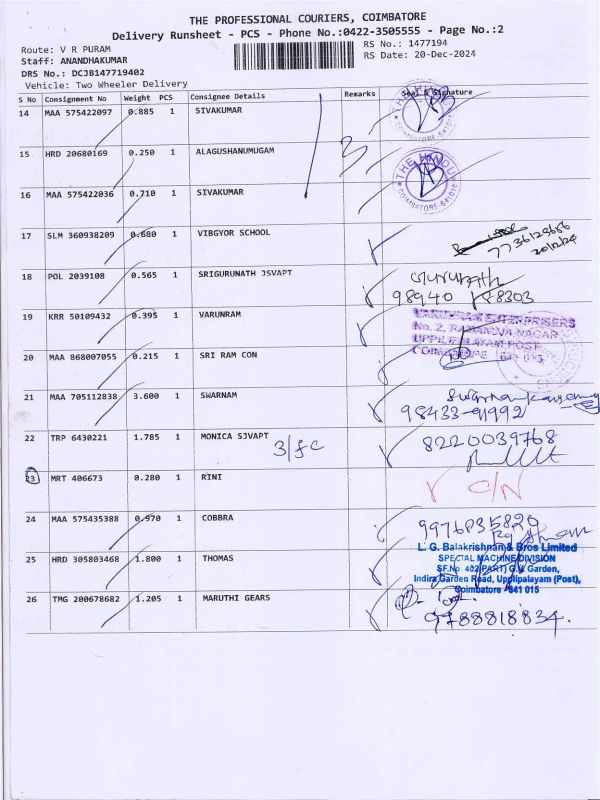 THE PROFESSIONAL COURIERS, COIMBATORE
Delivery Runsheet - PCS - Phone No.:0422-3505555 - Page No.:2
Route: V R PURAM
RS No.: 1477194
Staff: ANANDHAKUMAR
RS Date: 20-Dec-2024
DRS No.: DCJB147719402
Vehicle: Two Wheeler Delivery
S No Consignment No Weight PCS Consignee Details Remarks Seal & Signature
14 MAA 575422097 0.885 1 SIVAKUMAR
THE HINDU
COIMBATORE-641018
15 HRD 20680169 0.250 1 ALAGUSHANUMUGAM 3
16 MAA 575422036 0.710 1 SIVAKUMAR
THE HINDU
COIMBATORE-641018
17 SLM 360938209 0.680 1 VIBGYOR SCHOOL
20/12/24
18 POL 2039108 0.565 1 SRIGURUNATH JSVAPT
Gurunath
98940 78303
19 KRR 50109432 0.395 1 VARUNRAM
ENTERPRISERS
No. 2, RAMANUVA NAGAR
UPPILIPALAYAM POST
COIMBATORE - 641 015
20 MAA 868007055 0.215 1 SRI RAM CON
21 MAA 705112838 3.600 1 SWARNAM
98433-91992
22 TRP 6430221 1.785 1 MONICA SJVAPT
3/fc
8220039768
23 MRT 406673 0.280 1 RINI
C/N
24 MAA 575435388 0.970 1 COBBRA
9976835820
25 HRD 305803468 1.800 1 THOMAS
L. G. Balakrishnan & Bros Limited
SPECIAL MACHINE DIVISION
SF.No. 402 PART) G.V. Garden,
Indira Garden Road, Upplipalayam (Post),
Coimbatore - 641 015
26 TMG 200678682 1.205 1 MARUTHI GEARS
9788818834.